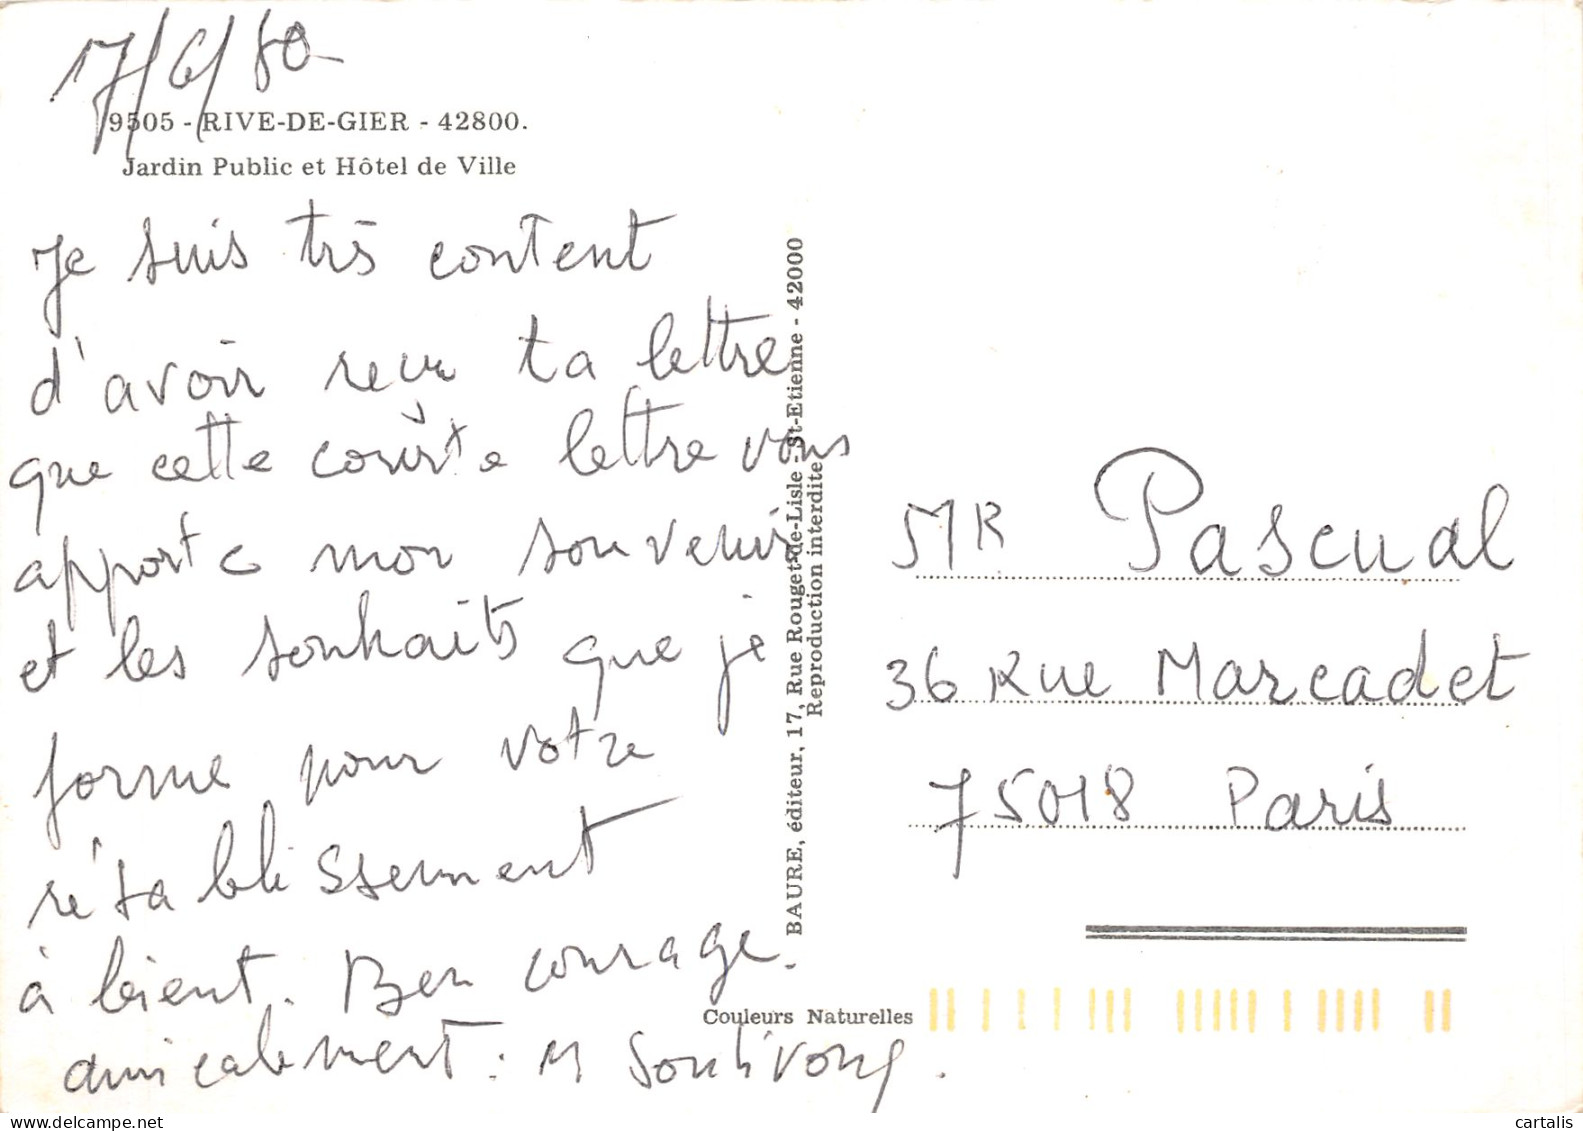 17/6/80
9505 - RIVE-DE-GIER - 42800.
Jardin Public et Hôtel de Ville
Je suis très content
d'avoir reçu ta lettre
que cette courte lettre vous
apporte mon souvenir
et les souhaits que je
forme pour votre
rétablissement
à bient. Bon courage.
amicalement : M
BAURE, éditeur, 17, Rue Rouget-de-Lisle - St-Etienne - 42000
Reproduction interdite
Couleurs Naturelles
MR Pascual
36 Rue Marcadet
75018 Paris
delcampe.net
cartalis